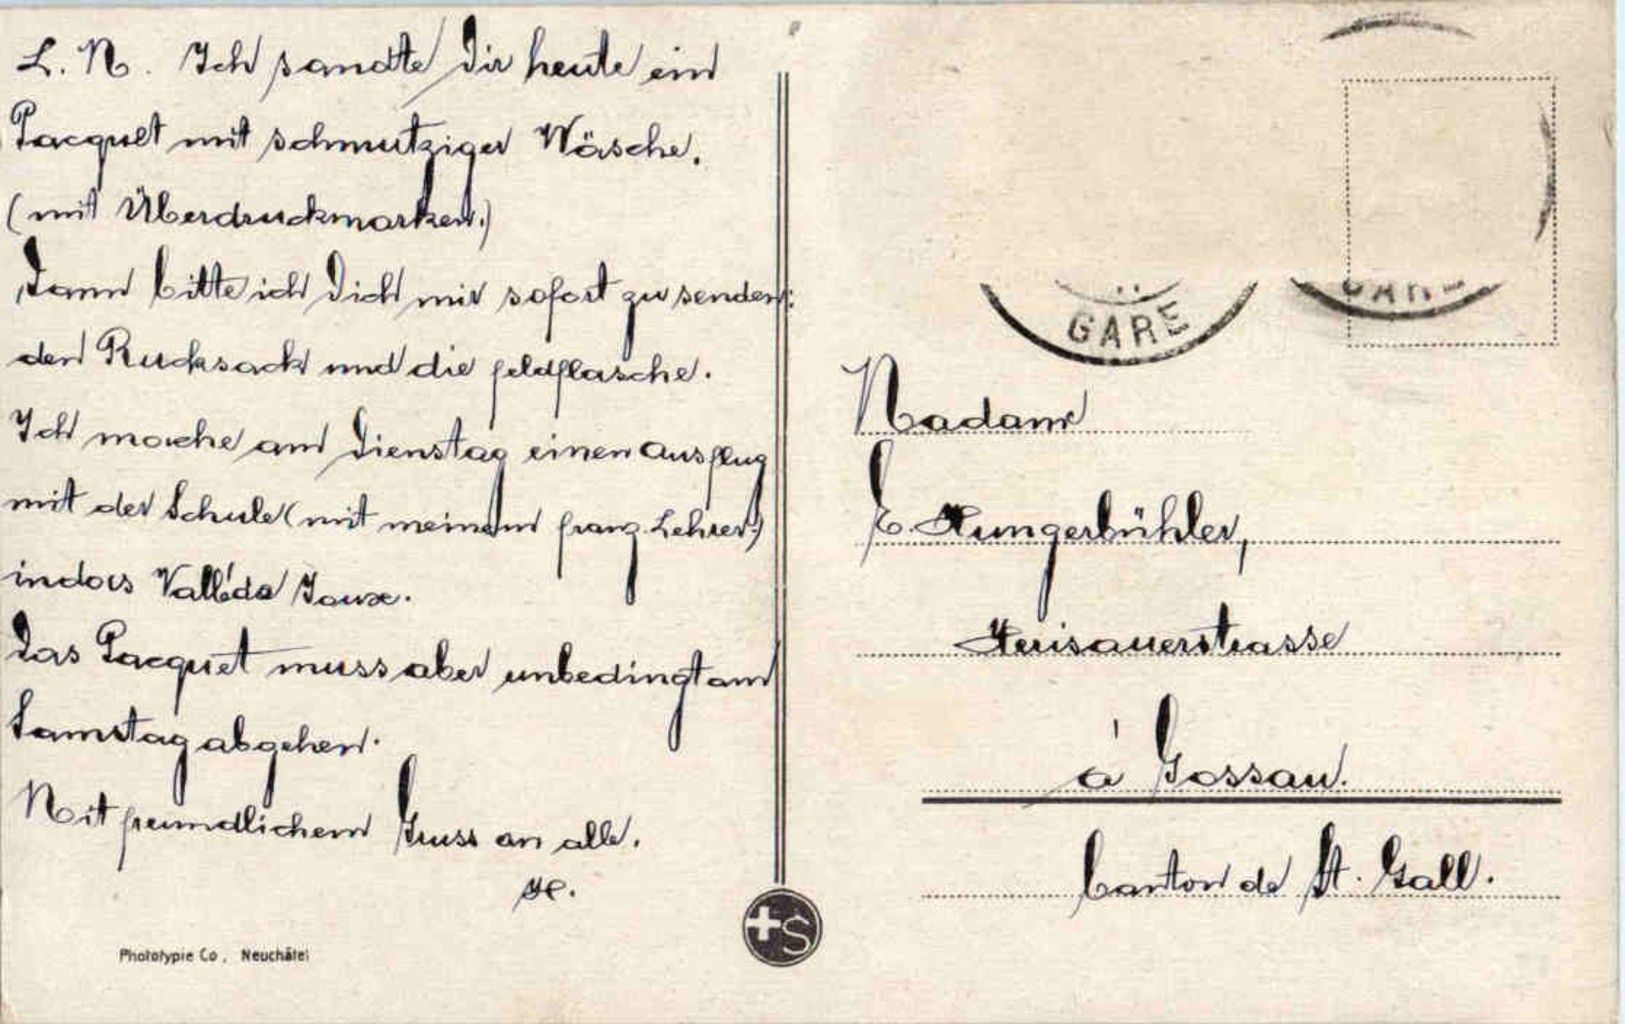 L. M. Ich sandte Dir heute ein
Pacquet mit schmutziger Wäsche.
(mit Überdruckmarken.)
Dann bitte ich Dich mir sofort zu senden:
den Rucksack und die Feldflasche.
Ich mache am Dienstag einen Ausflug
mit der Schule (mit meinem franz. Lehrer)
in das Vallé de Joux.
Das Pacquet muss aber unbedingt am
Samstag abgehen.
Mit freundlichem Gruss an alle.
H.
Phototypie Co, Neuchâtel
+S
GARE
GARE
Madame
E. Hungerbühler,
Herisauerstrasse
à Gossau.
Canton de St. Gall.